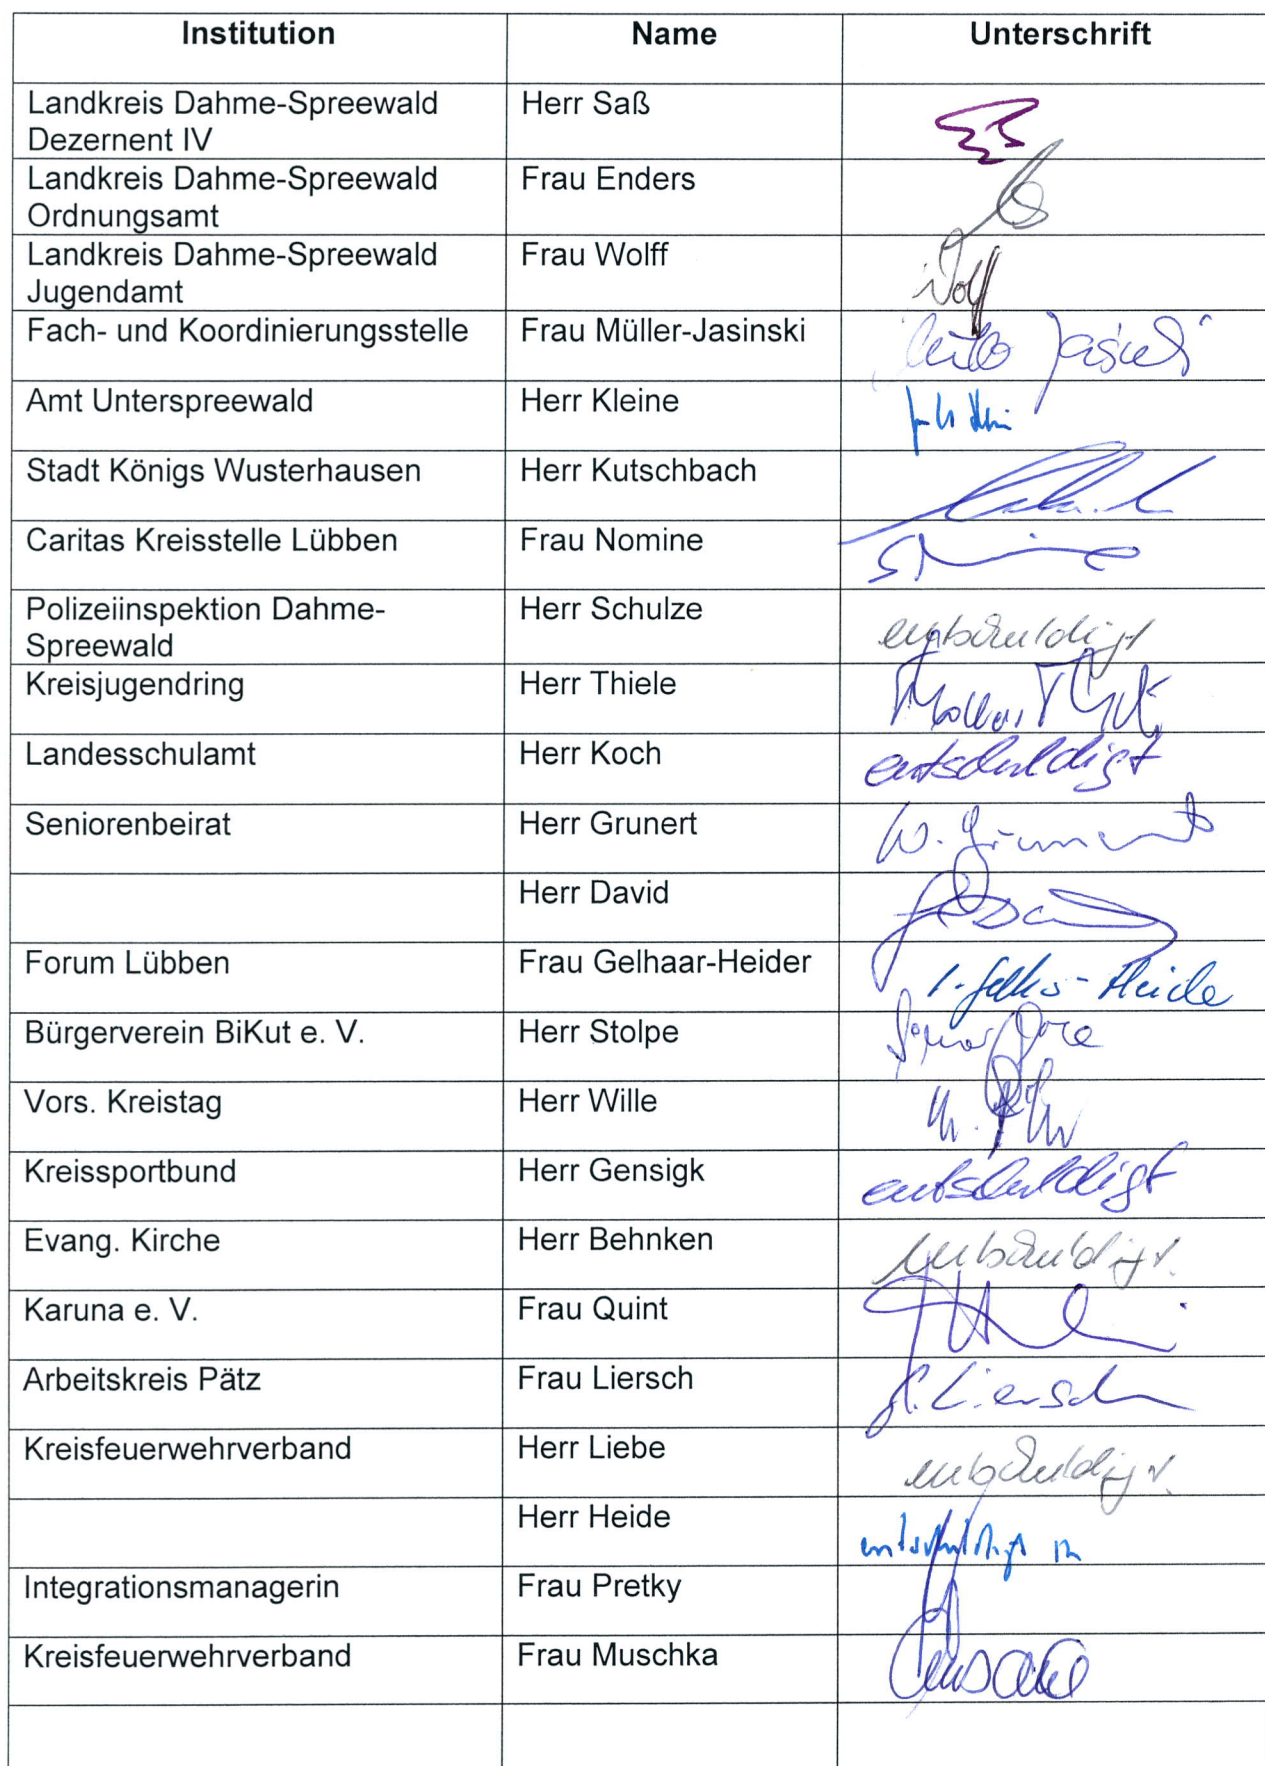 Institution Name Unterschrift
Landkreis Dahme-Spreewald Herr Saß
Dezernent IV
Landkreis Dahme-Spreewald Frau Enders
Ordnungsamt
Landkreis Dahme-Spreewald Frau Wolff
Jugendamt
Wolff
Fach- und Koordinierungsstelle Frau Müller-Jasinski
Amt Unterspreewald Herr Kleine
Stadt Königs Wusterhausen Herr Kutschbach
Caritas Kreisstelle Lübben Frau Nomine
Polizeiinspektion Dahme- Herr Schulze entschuldigt
Spreewald
Kreisjugendring Herr Thiele
Landesschulamt Herr Koch entschuldigt
Seniorenbeirat Herr Grunert W. Grunert
Herr David
Forum Lübben Frau Gelhaar-Heider
Bürgerverein BiKut e. V. Herr Stolpe
Vors. Kreistag Herr Wille
Kreissportbund Herr Gensigk entschuldigt
Evang. Kirche Herr Behnken entschuldigt.
Karuna e. V. Frau Quint
Arbeitskreis Pätz Frau Liersch Liersch
Kreisfeuerwehrverband Herr Liebe entschuldigt.
Herr Heide entschuldigt
Integrationsmanagerin Frau Pretky
Kreisfeuerwehrverband Frau Muschka